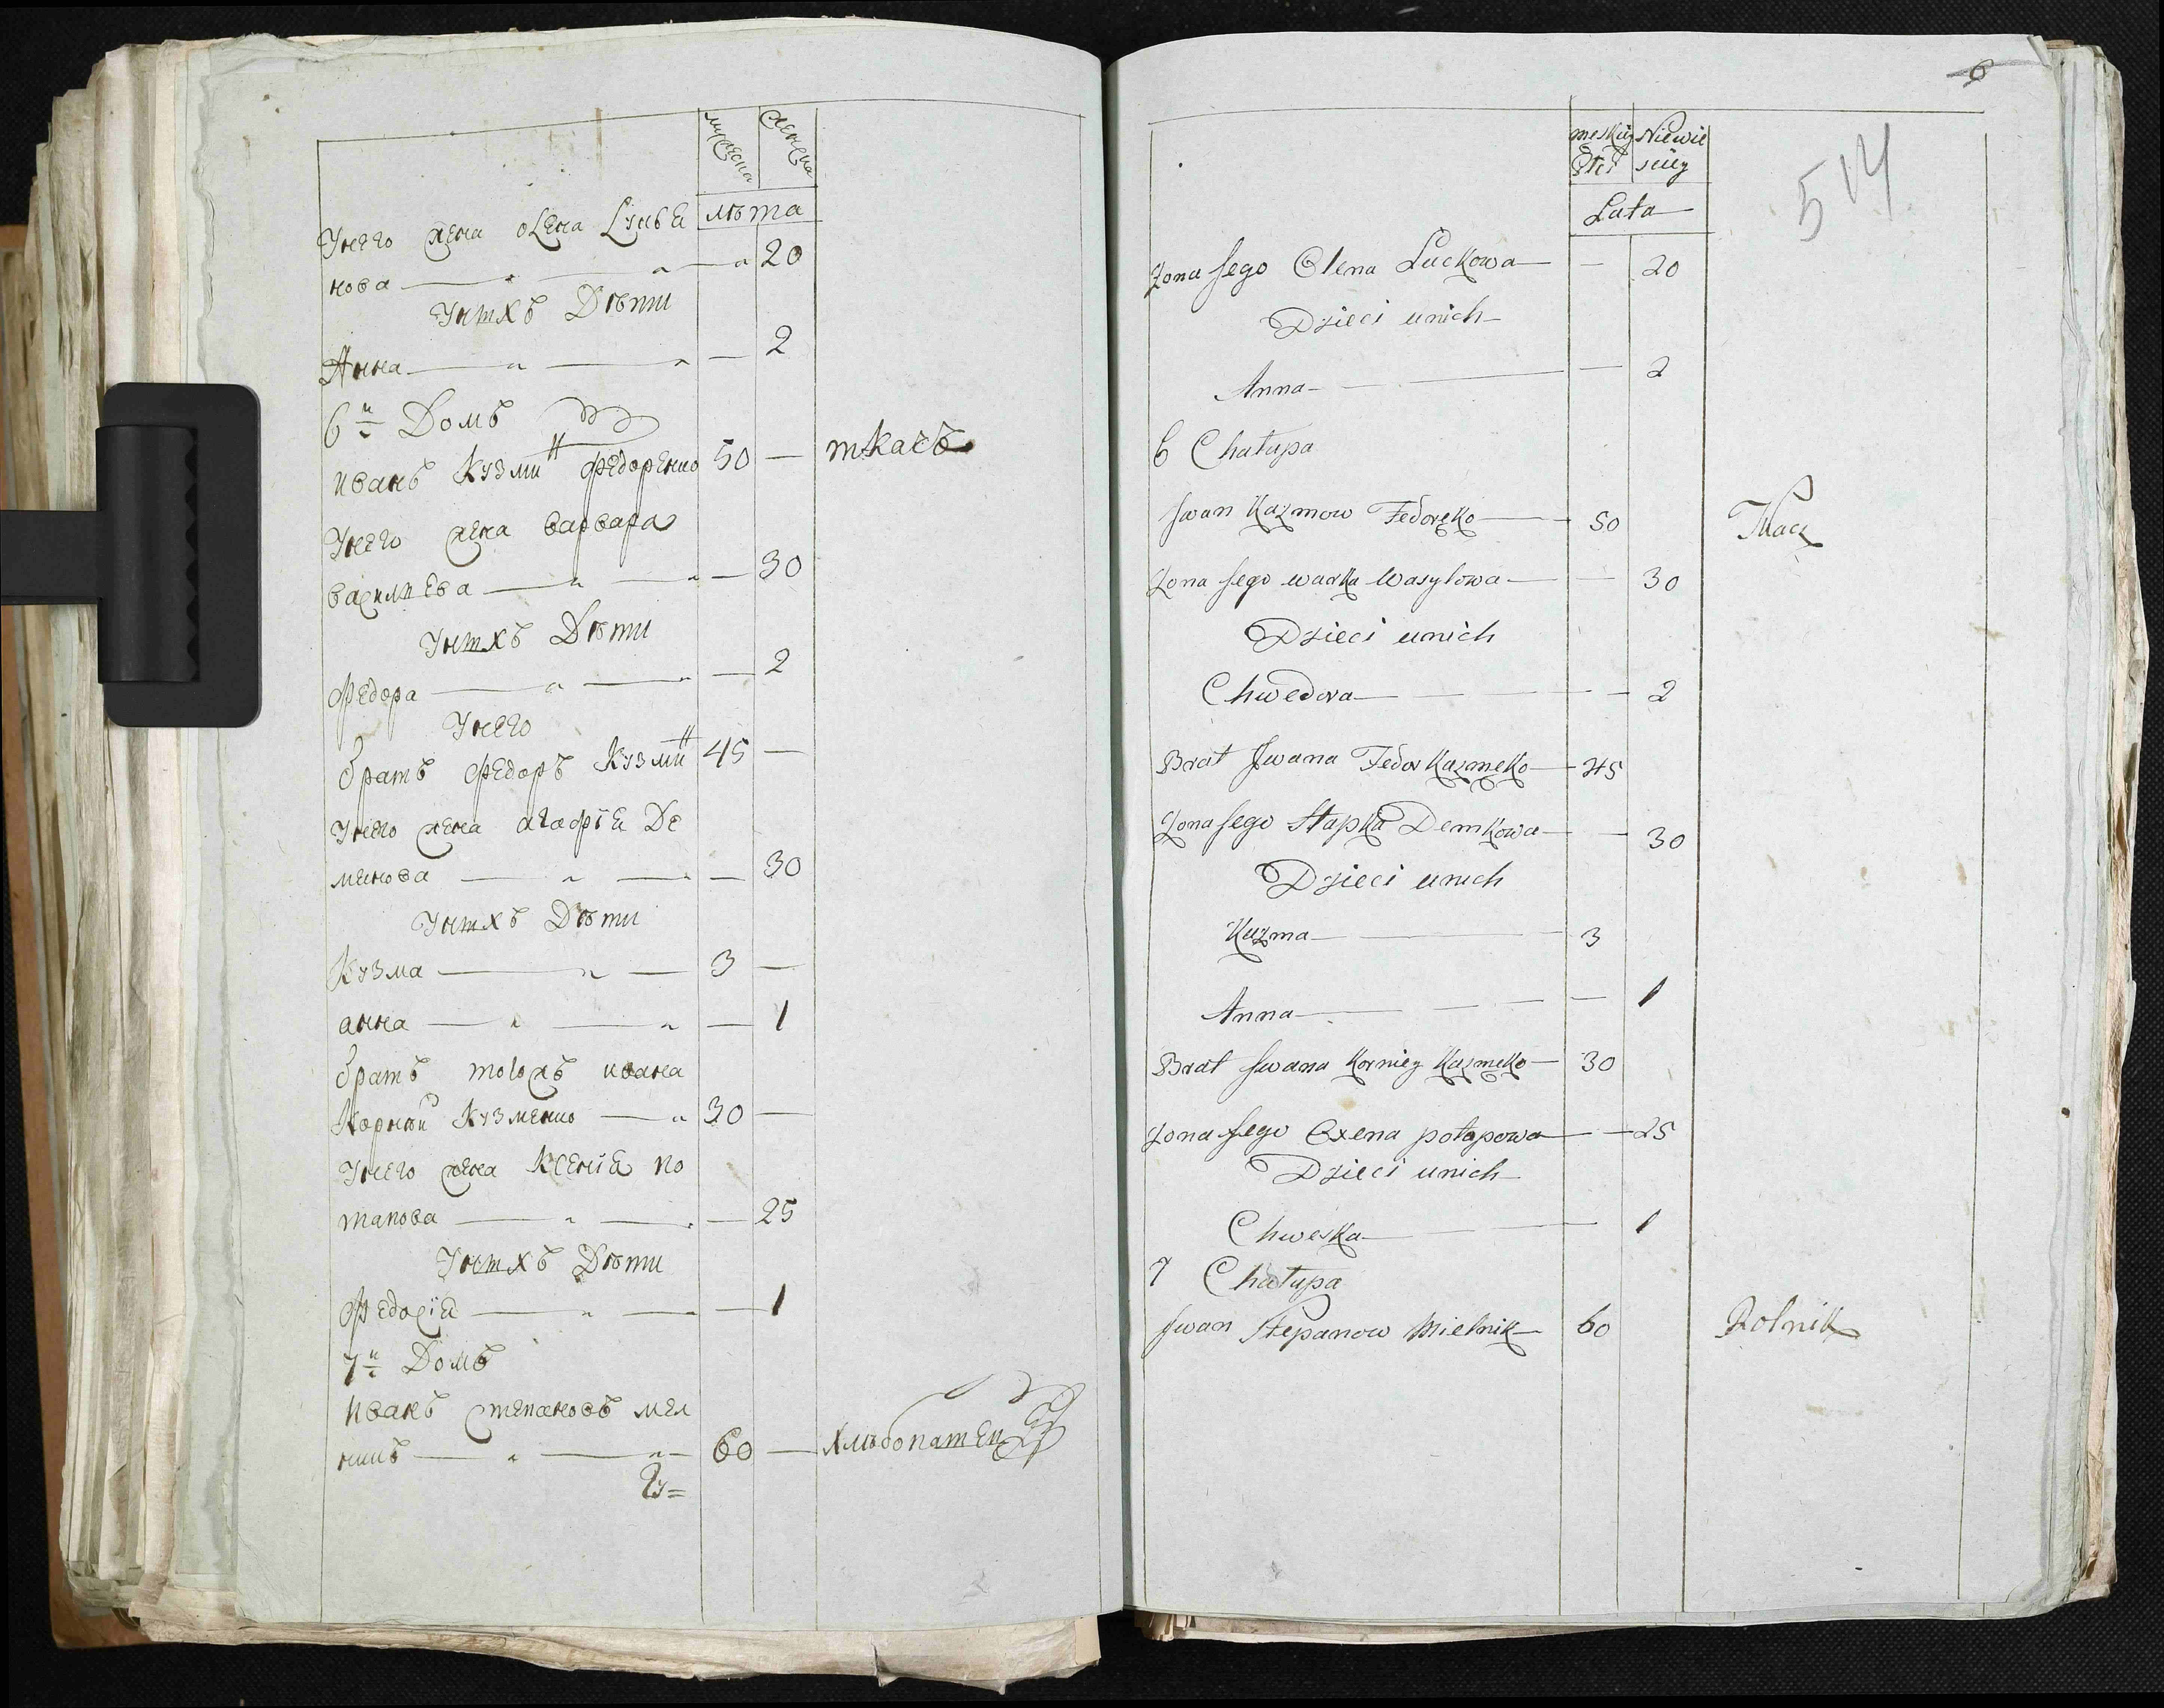 мужеска женска
лѣта
Унего жена олена Lукья
нова 20
Унихъ Дѣти
Анна 2
6й Домъ
иванъ Кузмин Федоренко 50 — ткачъ
Унего жена варвара
василиева 30
Унихъ Дѣти
Федора 2
Унего
братъ Федоръ Кузмин 45 —
Унего жена агафія Де
мянова 30
Унихъ Дѣти
Кузма 3 —
анна — 1
братъ тогожъ ивана
Корнѣй Кузменко 30 —
Унего жена Ксенія по
тапова — 25
Унихъ Дѣти
Федосія — 1
7й Домъ
иванъ Степановъ мел
никъ 60 — хлѣбопашец
6
514
męskiey Niewie
płci sciey
Lata
Zona Jego Olena Luckowa — 20
Dzieci unich
Anna — 2
6 Chałupa
Jwan Kuzmow Fedoręko 50 Tkacz
Zona Jego warka Wasylowa — 30
Dzieci unich
Chwedora — 2
Brat Jwana Fedor Kuzmęko 45
Zona Jego Stapka Demkowa — 30
Dzieci unich
Kuzma 3
Anna — 1
Brat Jwana Korniey Kuzmęko 30
Zona Jego Oxena potapowa — 25
Dzieci unich
Chweska 1
7 Chałupa
Jwan Stepanow Mielnik 60 Rolnik